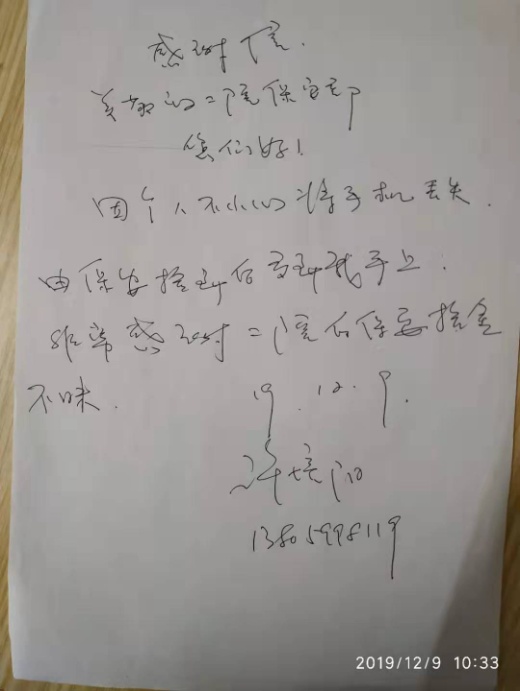 感谢信.
美好的二院保安部
您们好!
因个人不小心将手机丢失.
由保安捡到后交到我手上.
非常感谢二院的保安拾金
不昧.
19.12.9.
许培阳
13805998119
2019/12/9 10:33